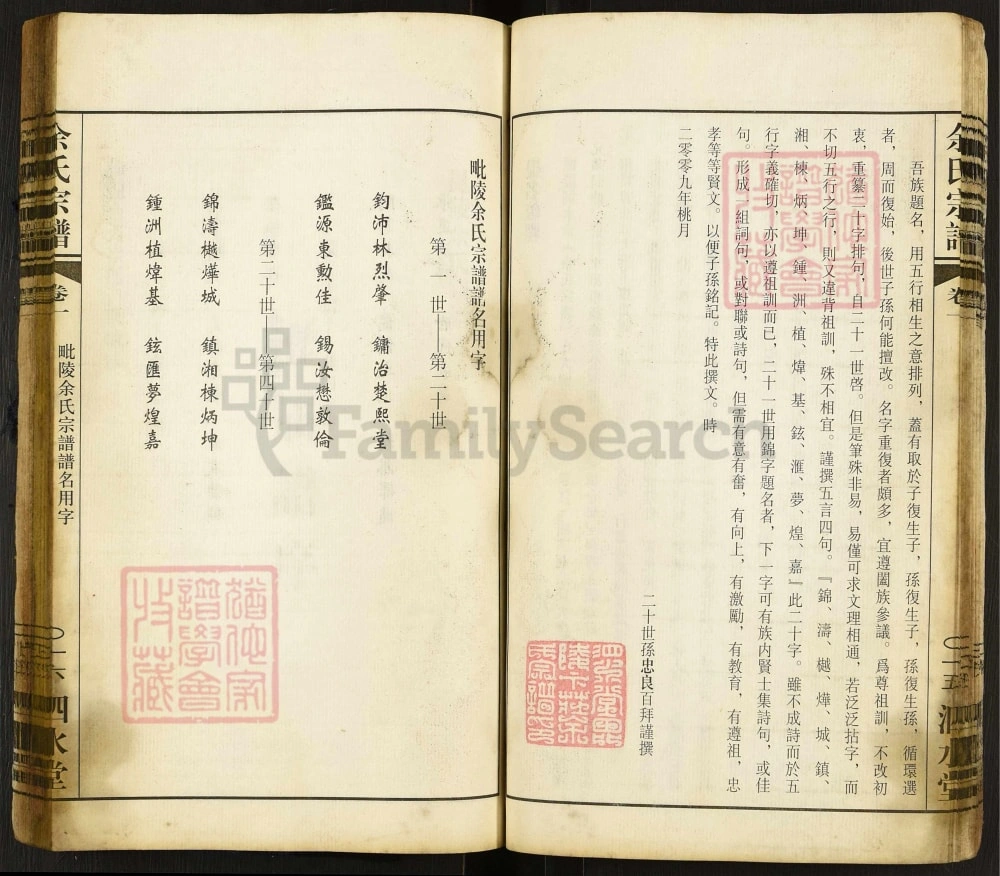 余氏宗譜
卷一
一五
泗水堂
吾族題名，用五行相生之意排列，蓋有取於子復生子，孫復生子，孫復生孫，循環選
者，周而復始，後世子孫何能擅改。名字重復者頗多，宜遵闔族參議。爲尊祖訓，不改初
衷，重纂二十字排句，自二十一世啓。但是筆殊非易，易僅可求文理相通，若泛泛拈字，而
不切五行之行，則又違背祖訓，殊不相宜。謹撰五言四句。『錦、濤、樾、燁、城、鎮、
湘、棟、炳、坤、鍾、洲、植、煒、基、鉉、滙、夢、煌、嘉』此二十字。雖不成詩而於五
行字義確切，亦以遵祖訓而已，二十一世用錦字題名者，下一字可有族内賢士集詩句，或佳
句。形成一組詞句，或對聯或詩句，但需有意有奮，有向上，有激勵，有教育，有遵祖，忠
孝等等賢文。以便子孫銘記。特此撰文。時
二零零九年桃月
二十世孫忠良百拜謹撰
毗陵余氏宗譜譜名用字
第一世—第二十世
鈞沛林烈肇 鏞治楚熙堂
鑑源東勲佳 錫汝懋敦倫
第二十世—第四十世
錦濤樾燁城 鎮湘棟炳坤
鍾洲植煒基 鉉匯夢煌嘉
余氏宗譜
卷一
毗陵余氏宗譜譜名用字
一六
泗水堂
FamilySearch